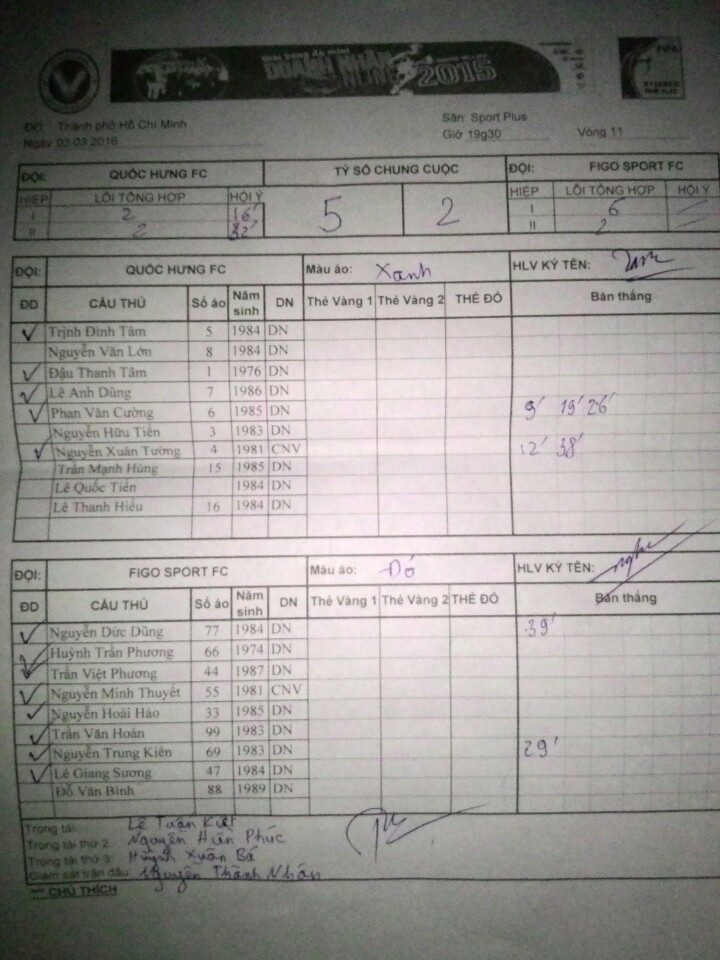 DOANH NHÂN
2015
FIFA
ĐD: Thành phố Hồ Chí Minh
Sân: Sport Plus
Ngày 03 03 2016
Giờ 19g30
Vòng 11
ĐỘI: QUỐC HƯNG FC TỶ SỐ CHUNG CUỘC ĐỘI: FIGO SPORT FC
HIỆP LỖI TỔNG HỢP HỘI Ý 5 2 HIỆP LỖI TỔNG HỢP HỘI Ý
I 2 16' I 6
II 2 32' II 2
ĐỘI: QUỐC HƯNG FC Màu áo: Xanh HLV KÝ TÊN:
ĐD CẦU THỦ Số áo Năm sinh DN Thẻ Vàng 1 Thẻ Vàng 2 THẺ ĐỎ Bàn thắng
✓ Trịnh Đình Tâm 5 1984 DN
Nguyễn Văn Lớn 8 1984 DN
✓ Đậu Thanh Tâm 1 1976 DN
✓ Lê Anh Dũng 7 1986 DN
✓ Phan Văn Cường 6 1985 DN 9' 19' 26'
Nguyễn Hữu Tiến 3 1983 DN
✓ Nguyễn Xuân Tường 4 1981 CNV 12' 38'
Trần Mạnh Hùng 15 1985 DN
Lê Quốc Tiến 1984 DN
Lê Thanh Hiếu 16 1984 DN
ĐỘI: FIGO SPORT FC Màu áo: Đỏ HLV KÝ TÊN:
ĐD CẦU THỦ Số áo Năm sinh DN Thẻ Vàng 1 Thẻ Vàng 2 THẺ ĐỎ Bàn thắng
✓ Nguyễn Đức Dũng 77 1984 DN 39'
✓ Huỳnh Trần Phương 66 1974 DN
✓ Trần Việt Phương 44 1987 DN
✓ Nguyễn Minh Thuyết 55 1981 CNV
✓ Nguyễn Hoài Hào 33 1985 DN
✓ Trần Văn Hoàn 99 1983 DN
✓ Nguyễn Trung Kiên 69 1983 DN 29'
✓ Lê Giang Sương 47 1984 DN
Đỗ Văn Bình 88 1989 DN
Trọng tài: Lê Tuấn Kiệt
Trọng tài thứ 2: Nguyễn Hiền Phúc
Trọng tài thứ 3: Huỳnh Xuân Bá
Giám sát trận đấu: Nguyễn Thành Nhân
*** CHÚ THÍCH